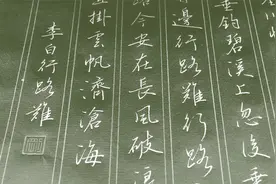 垂釣碧溪上忽復乘
邊行路難行路
路今安在長風破浪
直掛雲帆濟滄海
李白行路難